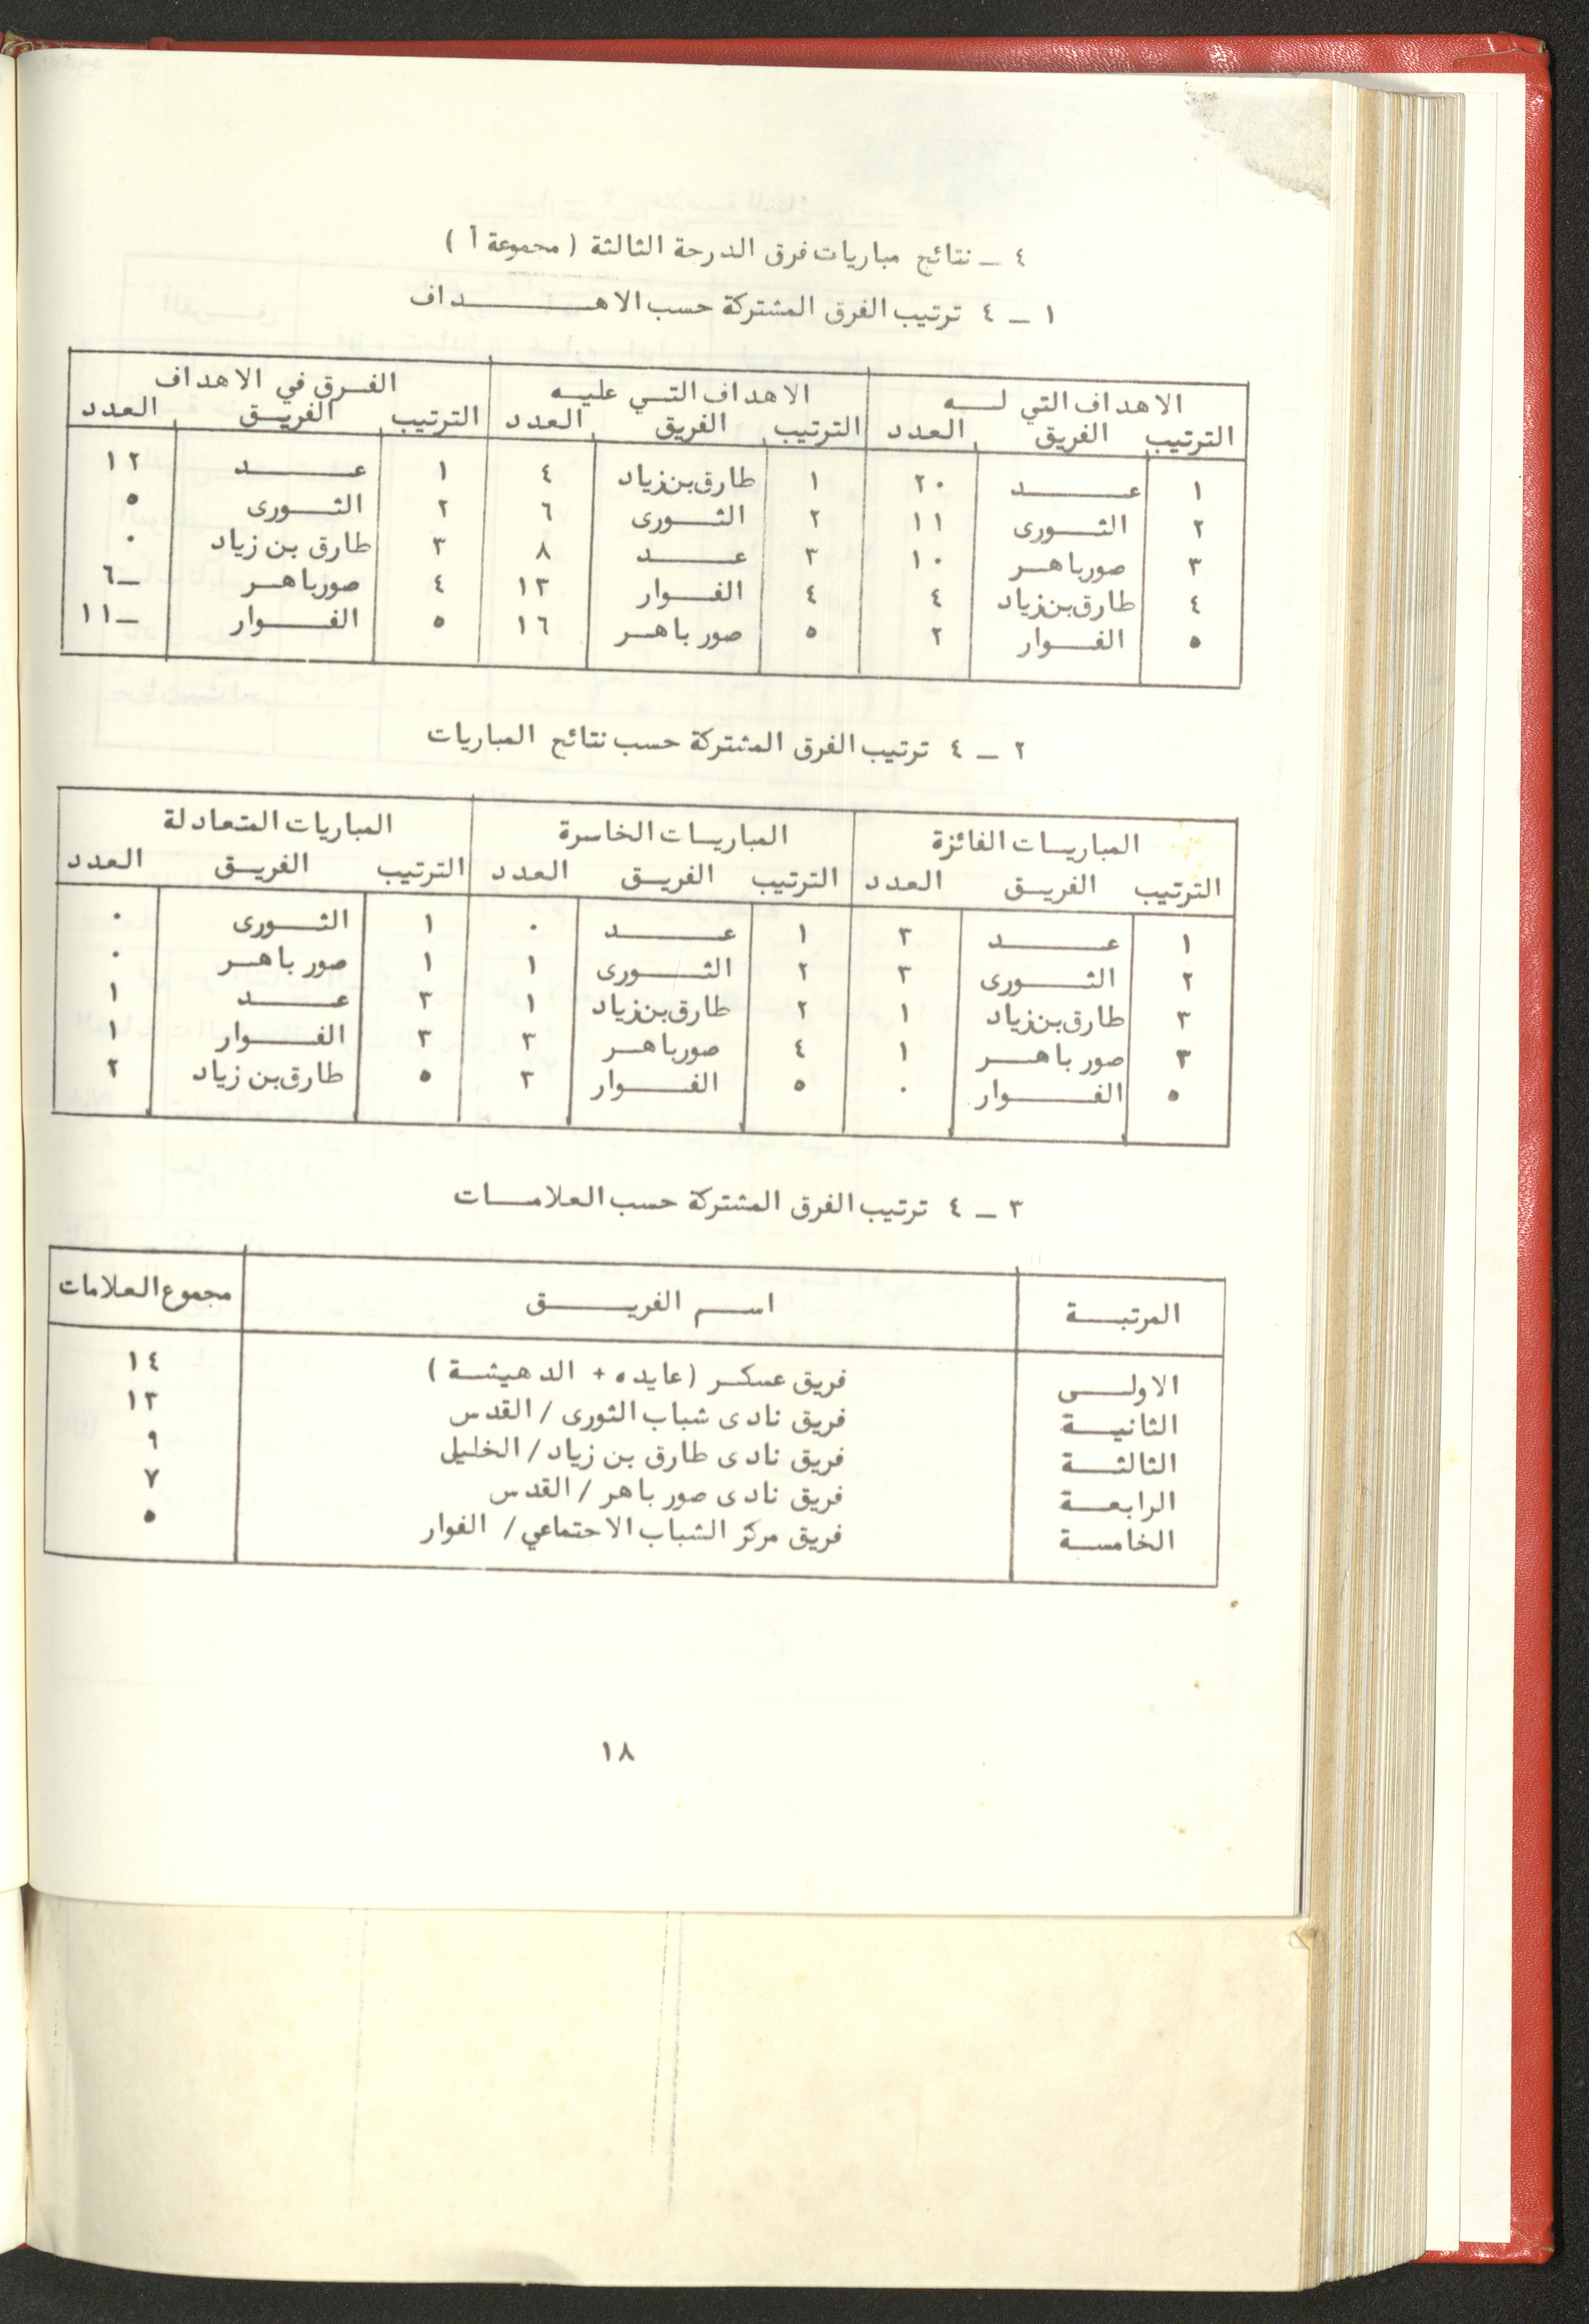 ٤ ــ نتائج مباريات فرق الدرجة الثالثة ( مجموعة أ )
١ ــ ٤ ترتيب الفرق المشتركة حسب الاهـــــداف
الاهداف التي لـــه الاهداف التـي عليـه الفـرق في الاهداف
الترتيب الفريق العدد الترتيب الفريق العدد الترتيب الفريـق العدد
١ عـــــد ٢٠ ١ طارق بن زياد ٤ ١ عـــــد ١٢
٢ الثـــورى ١١ ٢ الثـــورى ٦ ٢ الثـــورى ٥
٣ صورباهـر ١٠ ٣ عـــــد ٨ ٣ طارق بن زياد ٠
٤ طارق بن زياد ٤ ٤ الفـــوار ١٣ ٤ صورباهـر ــ٦
٥ الفـــوار ٢ ٥ صور باهـر ١٦ ٥ الفـــوار ــ١١
٢ ــ ٤ ترتيب الفرق المشتركة حسب نتائج المباريات
المباريـات الفائزة المباريـات الخاسرة المباريات المتعادلة
الترتيب الفريـق العدد الترتيب الفريـق العدد الترتيب الفريـق العدد
١ عـــــد ٣ ١ عـــــد ٠ ١ الثـــورى ٠
٢ الثـــورى ٣ ٢ الثـــورى ١ ١ صور باهـر ٠
٣ طارق بن زياد ١ ٢ طارق بن زياد ١ ٣ عـــــد ١
٣ صور باهـر ١ ٤ صورباهـر ٣ ٣ الفـــوار ١
٥ الفـــوار ٠ ٥ الفـــوار ٣ ٥ طارق بن زياد ٢
٣ ــ ٤ ترتيب الفرق المشتركة حسب العلامـــات
المرتبــة اســـم الفريـــــق مجموع العلامات
الاولــى فريق عسكـر (عايده + الدهيشـة ) ١٤
الثانيـة فريق نادى شباب الثورى / القدس ١٣
الثالثـة فريق نادى طارق بن زياد/ الخليل ٩
الرابعـة فريق نادى صور باهر / القدس ٧
الخامسـة فريق مركز الشباب الاجتماعي/ الفوار ٥
١٨